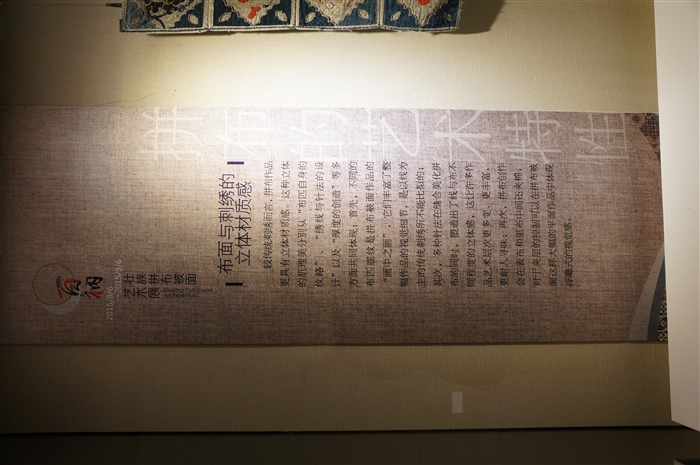 百衲
壮族拼布被面
艺术展
拼布的艺术特性
布面与刺绣的
立体材质感
较传统刺绣而言，拼布作品
更具有立体材质感，这种立体
的肌理美分别从“布匹自身的
纹路”、“绣线与针法的设
计”以及“厚度的创造”等多
方面共同体现：首先，不同的
布匹底纹是拼布被面作品的
“画中之画”，它们丰富了整
幅作品的视觉细节，是以线为
主的传统刺绣所不能比拟的；
其次，多种针法在缝合美化拼
布的同时，塑造出了线与布不
同程度的立体感，这让许多作
品艺术层次更多变、更丰富，
更耐人寻味；再次，拼布创作
会在表布和里布中间还夹棉，
对于夹层的控制可以在拼布被
面这种大幅的平面作品中体现
浮雕式的视觉感。